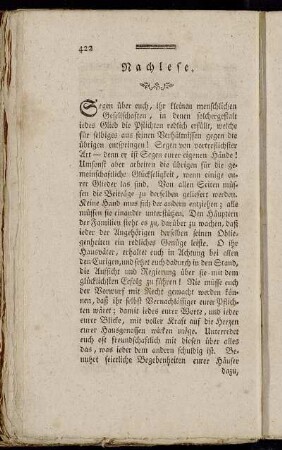 422
Nachlese.
Segen über euch, ihr kleinen menschlichen
Gesellschaften, in denen solchergestalt
iedes Glied die Pflichten redlich erfüllt, welche
für selbiges aus seinen Verhältnissen gegen die
übrigen entspringen! Segen von vortreflichster
Art — denn er ist Segen eurer eigenen Hände!
Umsonst aber arbeiten die übrigen für die ge-
meinschaftliche Glückseligkeit, wenn einige
Glieder las sind. Von allen Seiten müs-
sen die Beiträge zu derselben geliefert werden.
Keine Hand mus sich der andern entziehen; alle
müssen sie einander unterstüzen. Den Häuptern
der Familien steht es zu, darüber zu wachen, daß
ieder der Angehörigen derselben seinen Ob-
liegenheiten ein redliches Genüge leiste. O ihr
Hausväter, erhaltet euch in Achtung bei allen
den Eurigen, und sehet euch dadurch in den Stand,
die Aufsicht und Regierung über sie mit dem
glücklichsten Erfolg zu führen! Nie müsse euch
der Vorwurf mit Recht gemacht werden kön-
nen, daß ihr selbst Vernachläßiger eurer Pflich-
ten wäret; damit iedes eurer Worte, und ieder
eurer Blicke, mit voller Kraft auf die Herzen
eurer Hausgenossen würken möge. Unterredet
euch oft freundschaftlich mit diesen über alles
das, was ieder dem andern schuldig ist. Be-
nutzet feierliche Begebenheiten eurer Häuser
dazu,